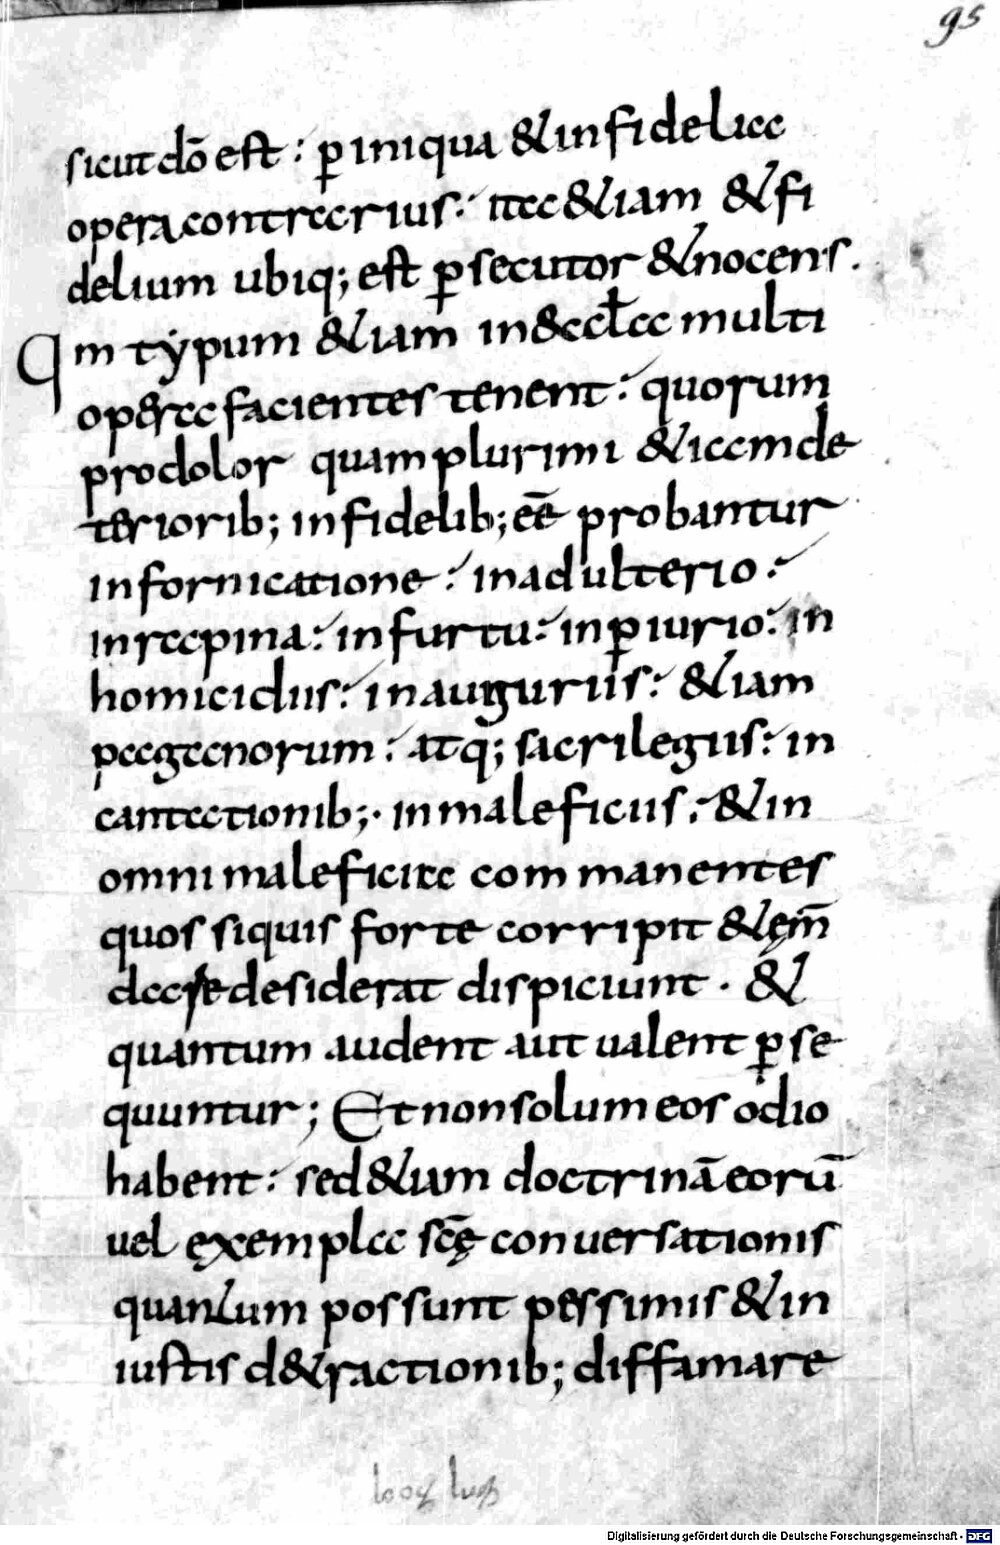 95
sicut dō est: ꝑ iniqua & infidelia
opera contrarius: ita &iam & fi
delium ubiq; est ꝑsecutor & nocens.
Qm typum &iam in aeccła multi
opera facientes tenent: quorum
prodolor quam plurimi &iam de
teriorib; infidelib; eē probantur
in fornicatione: in adulterio:
in rapina: in furtu: in ꝑiurio: in
homicidiis: in auguriis: &iam
paganorum: atq; sacrilegiis: in
cantationib;. in maleficiis: & in
omni maleficia com manentes
quos siquis forte corripit & ęm̄
dare desiderat dispiciunt. &
quantum audent aut ualent ꝑse
quuntur; Et non solum eos odio
habent: sed &iam doctrinā eorū
uel ęxempla scę̄ conuersationis
quantum possunt pessimis & in
iustis d&ractionib; diffamare
Digitalisierung gefördert durch die Deutsche Forschungsgemeinschaft - DFG